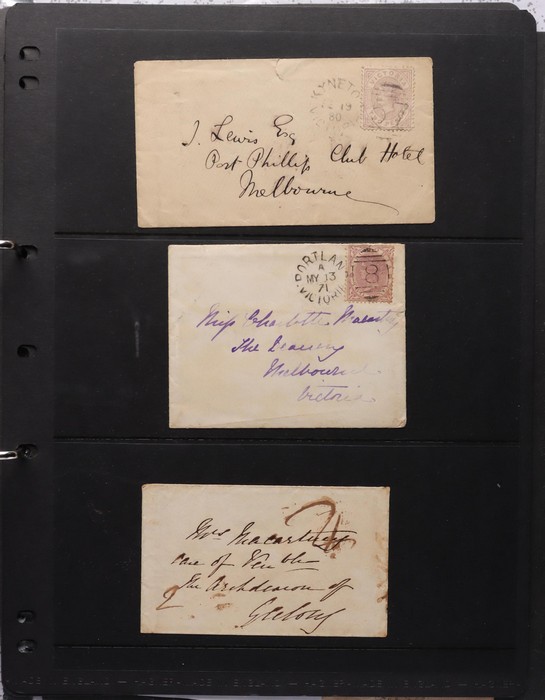 KYNETON
19
80
VICTORIA
27
J. Lewis Esq
Port Phillip Club Hotel
Melbourne
PORTLAN
A
MY 13
71
VICTORIA
8
Miss Charlotte Macartney
The Deanery
Melbourne
Victoria.
Mrs Macartney
care of Venble
The Archdeacon of
Geelong